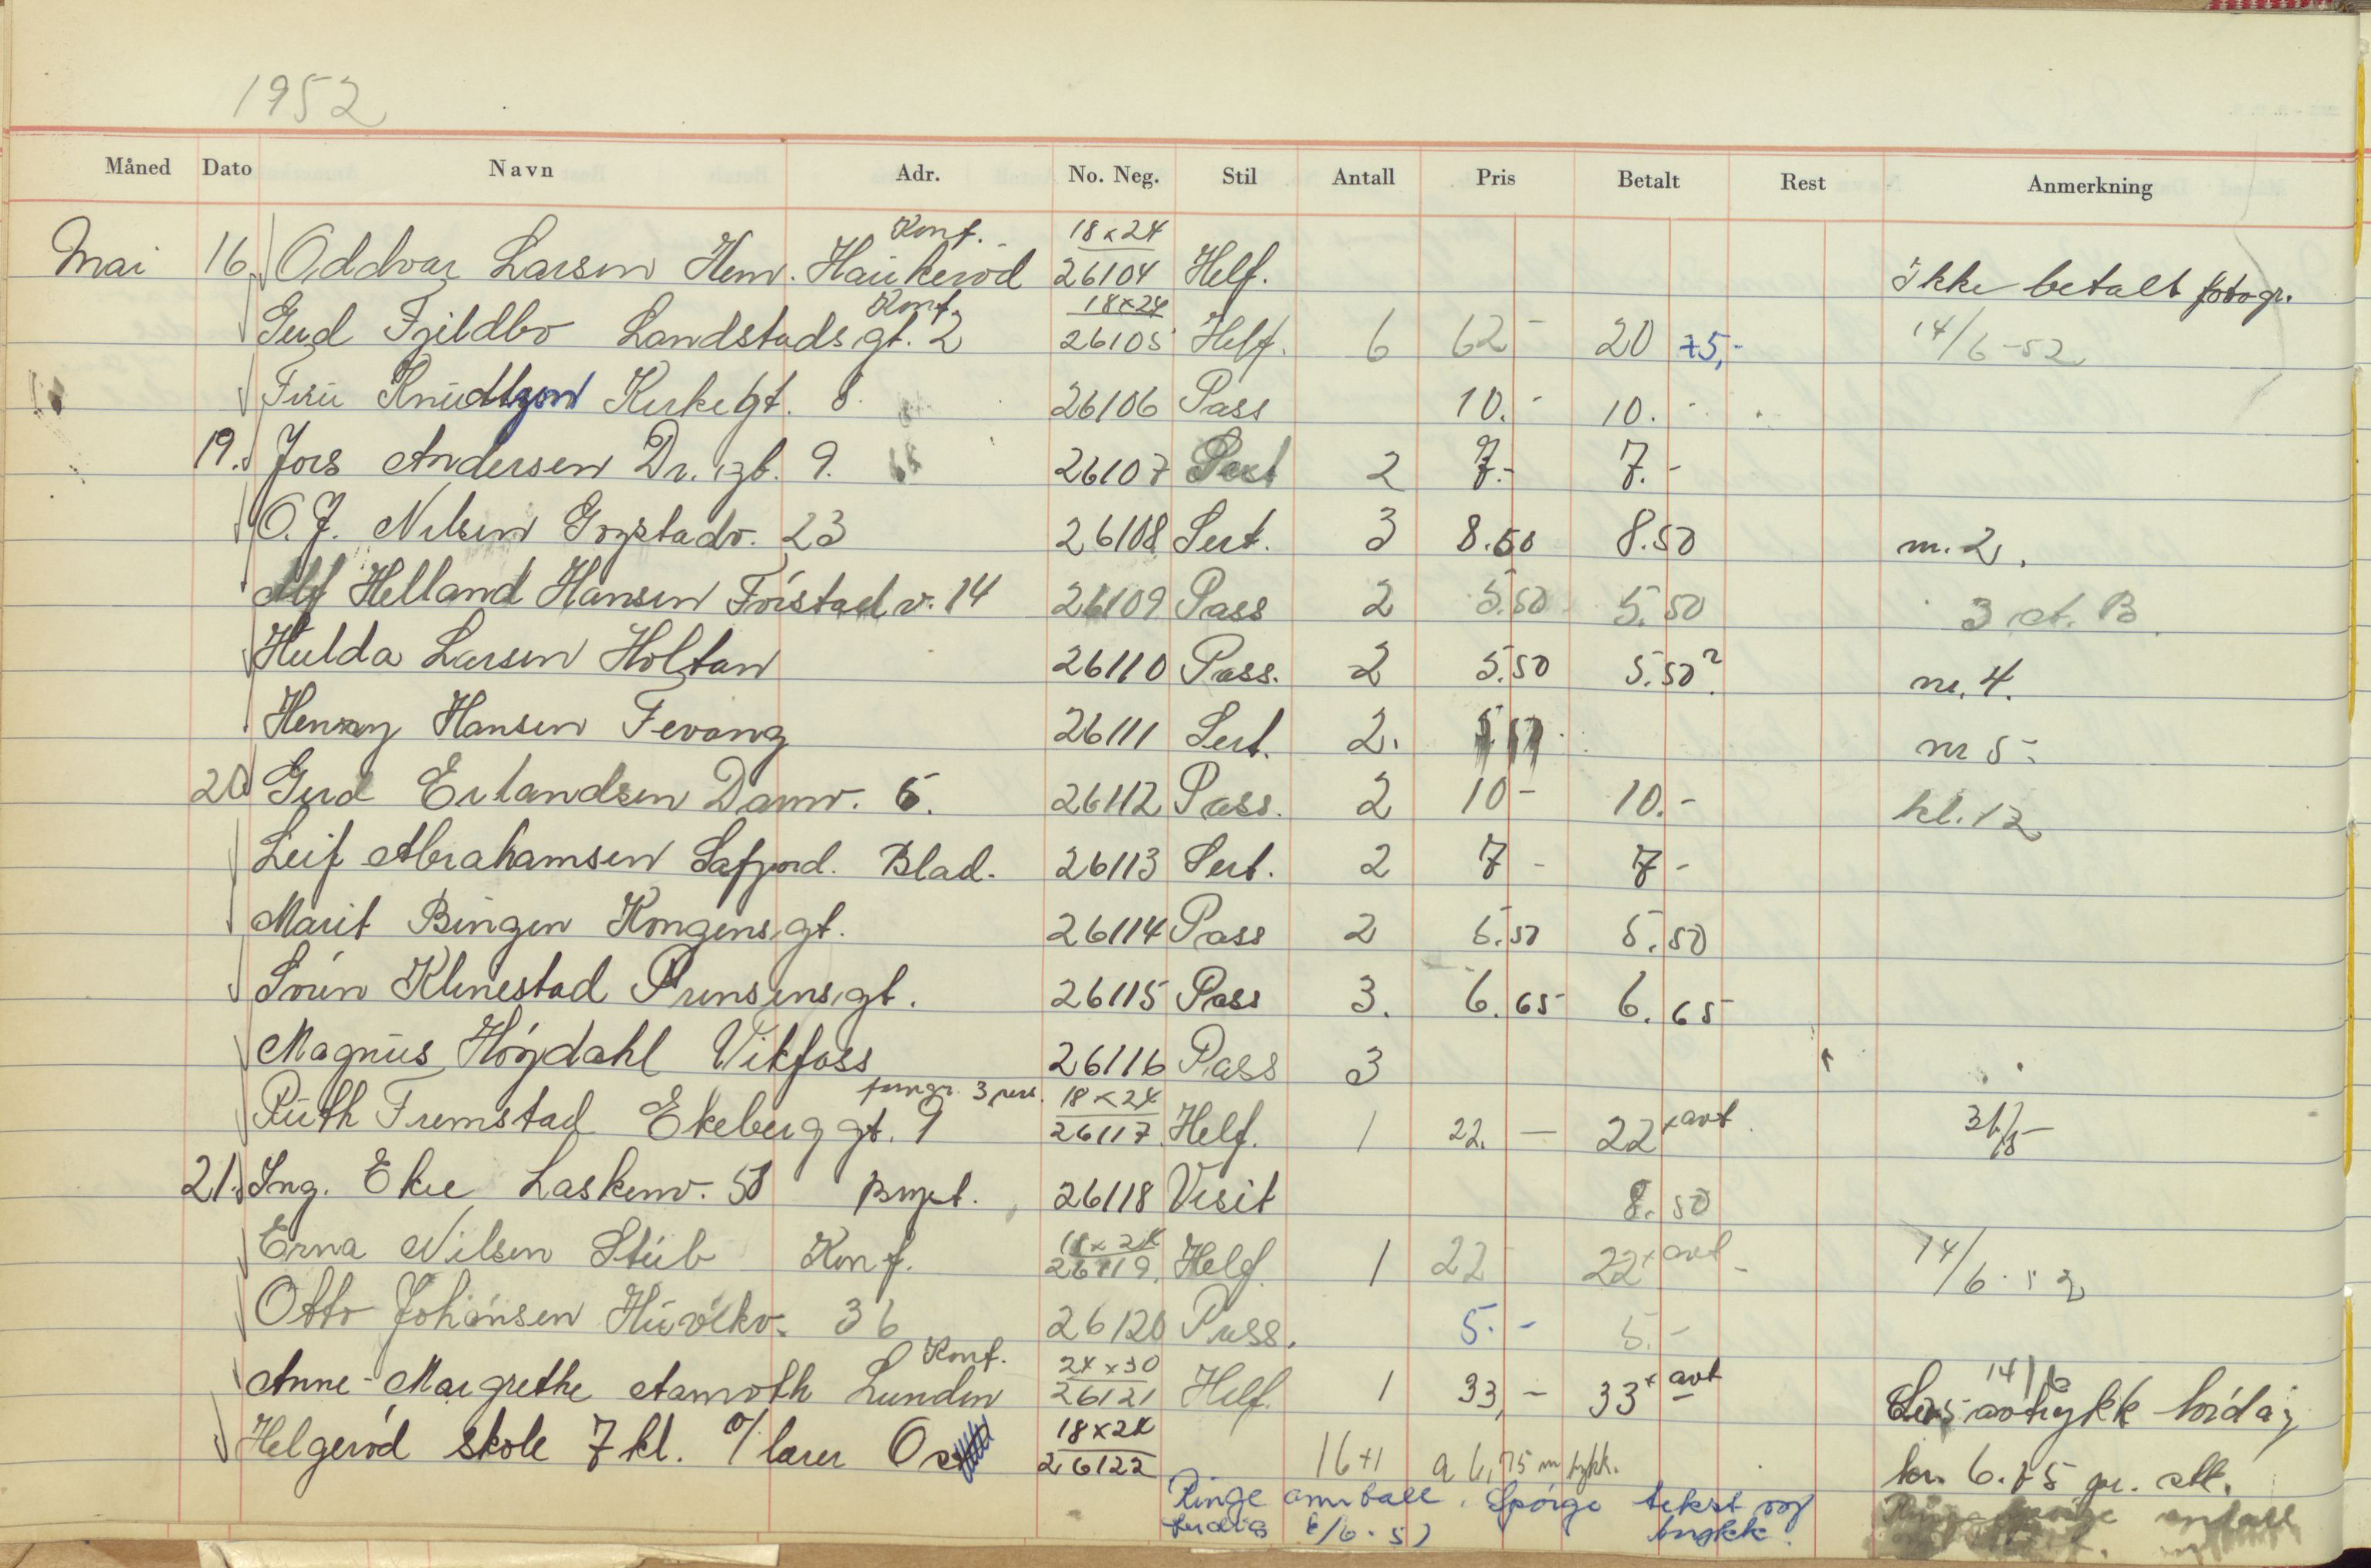 1952
Måned Dato Navn Adr. No. Neg. Stil Antall Pris Betalt Rest Anmerkning
Konf. 18x24
Mai 16. Oddvar Larsen Hem. Haukerød 26104 Helf. Ikke betalt fotogr.
Konf. 18x24
Gerd Fjeldbo Landstads gt. 2 26105 Helf. 6 62 - 20 +5,- 14/6-52
Fru Knudtzon Kirkegt. 8. 26106 Pass 10.- 10.-
19. Andersen Dr. gt. 9. 26107 2 7.- 7.-
O. J. Nilsen 23 26108 Sert. 3 8.50 8.50 m. 2.
Alf Helland Hansen v. 14 26109 Pass 2 5.50 5.50 3 st. B.
Hulda Larsen Holtan 26110 Pass. 2 5.50 5.50? nr. 4.
Henry Hansen Fevang 26111 Sert. 2. nr 5-
20 Gerd Erlandsen Damv. 6. 26112 Pass. 2 10- 10.- kl. 12
Leif Abrahamsen Blad. 26113 Sert. 2 7 - 7 -
Marit Bingen Kongens gt. 26114 Pass 2 5.50 5.50
Klinestad Prinsens gt. 26115 Pass 3. 6.65 6.65
Magnus Høydahl Vikfoss 26116 Pass 3
3 pers. 18x24
Ruth Fremstad Ekeberg gt. 9 26117 Helf. 1 22. - 22 + avt 31/5-
21. Ing. Ekre 26118 Visit 8.50
18x24
Erna Nilsen Stub Konf. 26119. Helf. 1 22 22 + avt - 14/6-52
Otto Johansen 36 26120 Pass. 5.- 5.-
Konf. 24x30 14/6
Anne-Margrethe Aamoth Lunden 26121 Helf. 1 33,- 33 + avt
18x24
Helgerød skole 7 kl. v/lærer 26122 16+1 a 6,75 m trykk. kr. 6.75 pr. stk.
Ringe antall. Spørge tekst og
trykk.